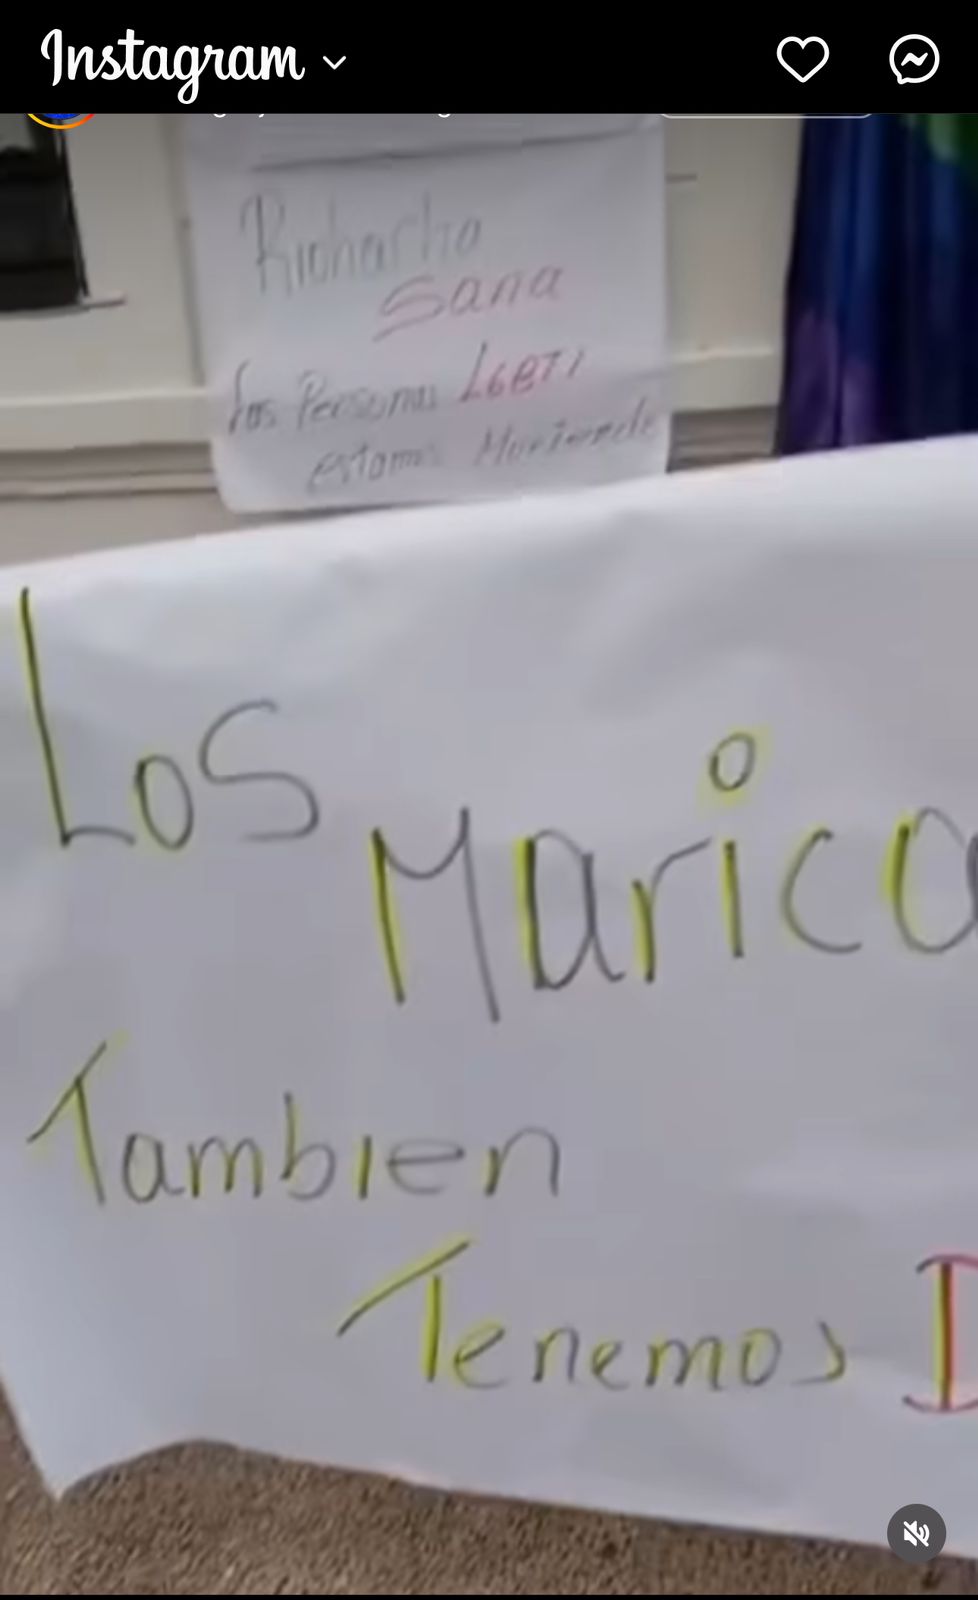 Instagram
Riohacha
Sana
Las Personas LGBTI
estamos Muriendo
Los
Marica
Tambien
Tenemos D